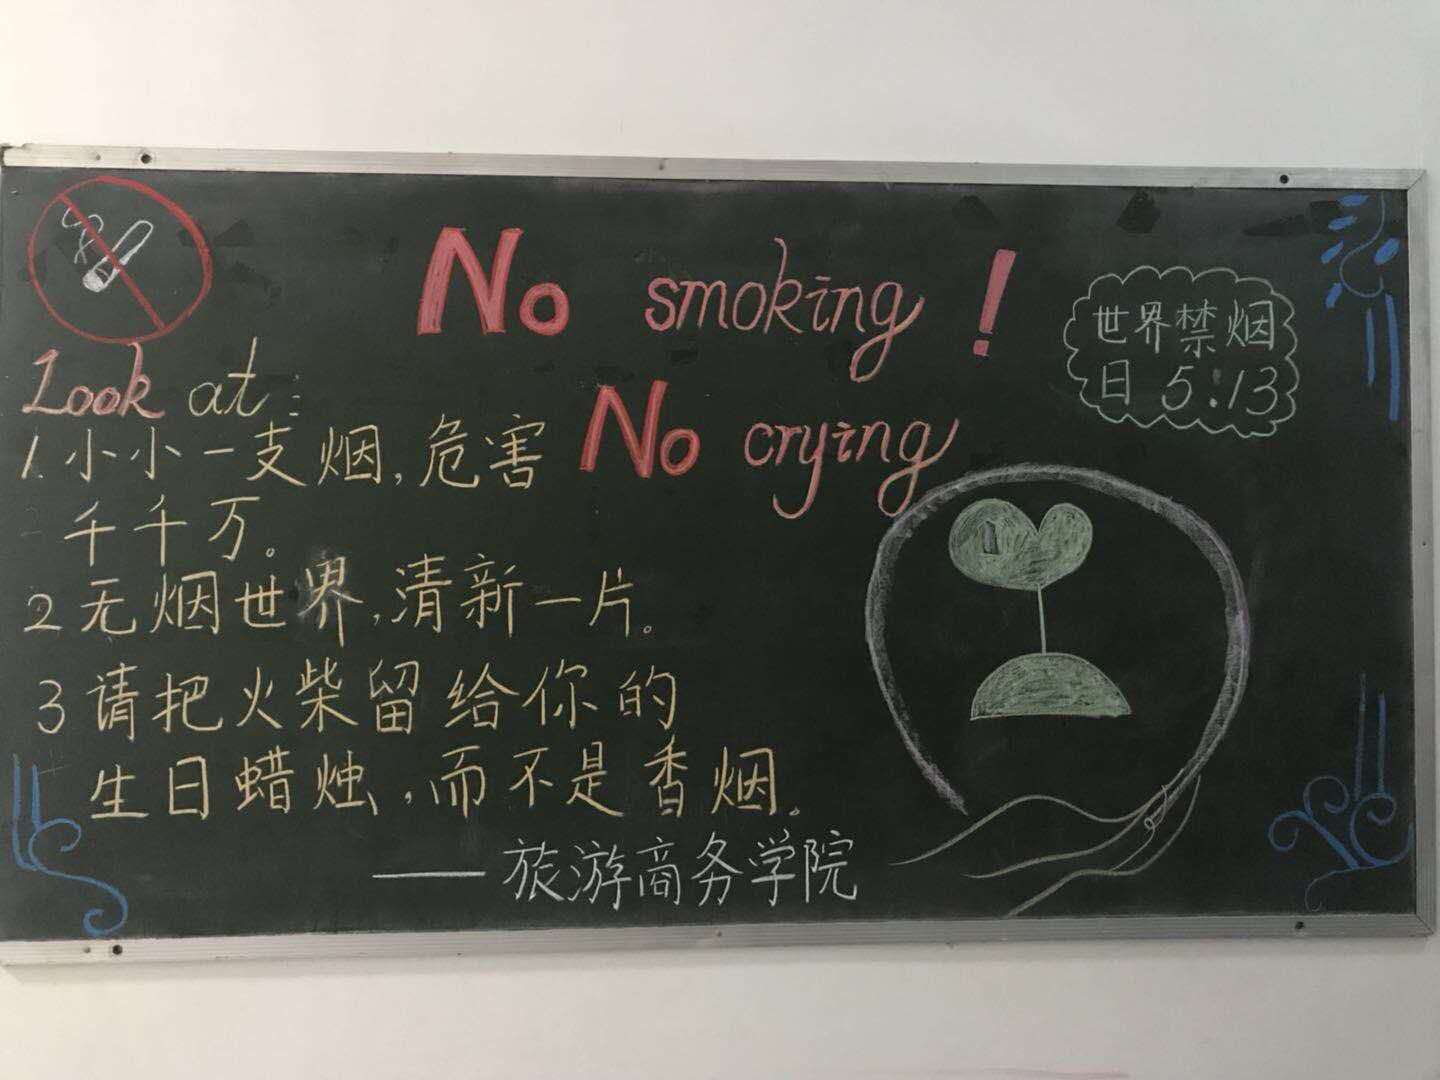 No smoking!
世界禁烟
日 5:13
Look at:
No crying
1.小小一支烟,危害
千千万。
2无烟世界,清新一片。
3请把火柴留给你的
生日蜡烛,而不是香烟。
——旅游商务学院